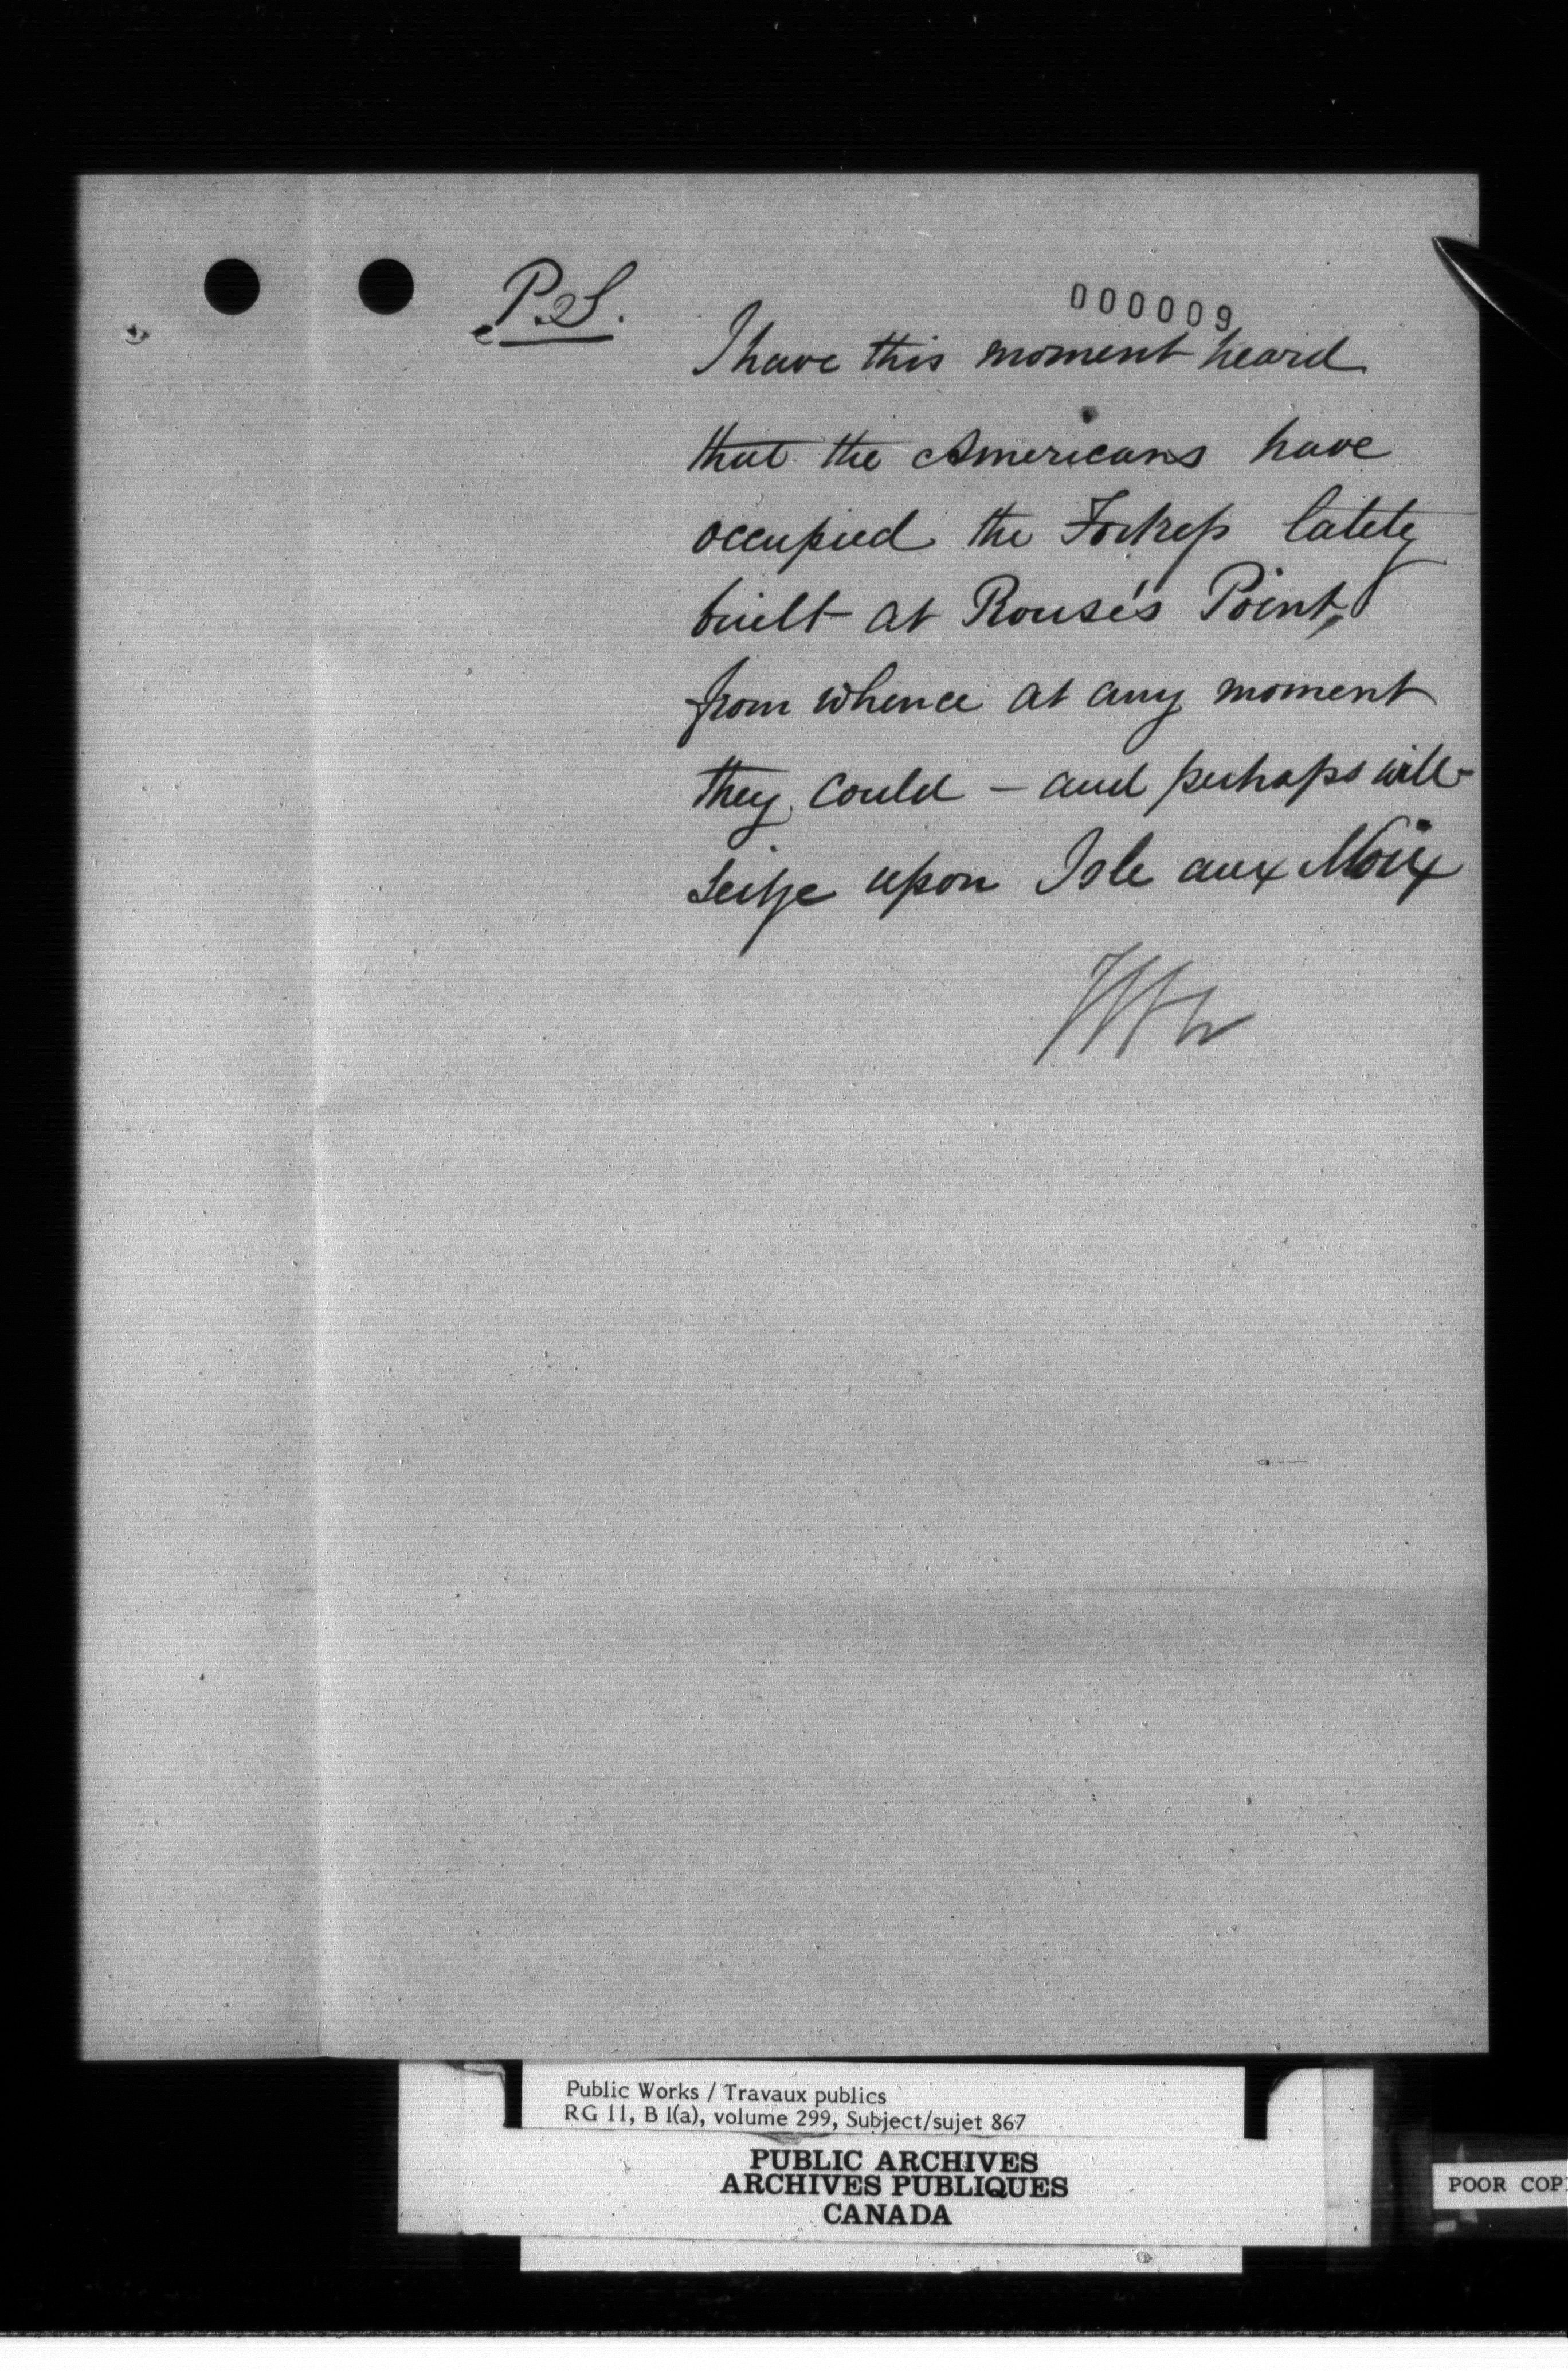 000009
P.S.
I have this moment heard
that the Americans have
occupied the Fortress lately
built at Rouse's Point,
from whence at any moment
they could – and perhaps will –
seize upon Isle aux Noix
Public Works / Travaux publics
RG 11, B 1(a), volume 299, Subject/sujet 867
PUBLIC ARCHIVES
ARCHIVES PUBLIQUES
CANADA
POOR COP